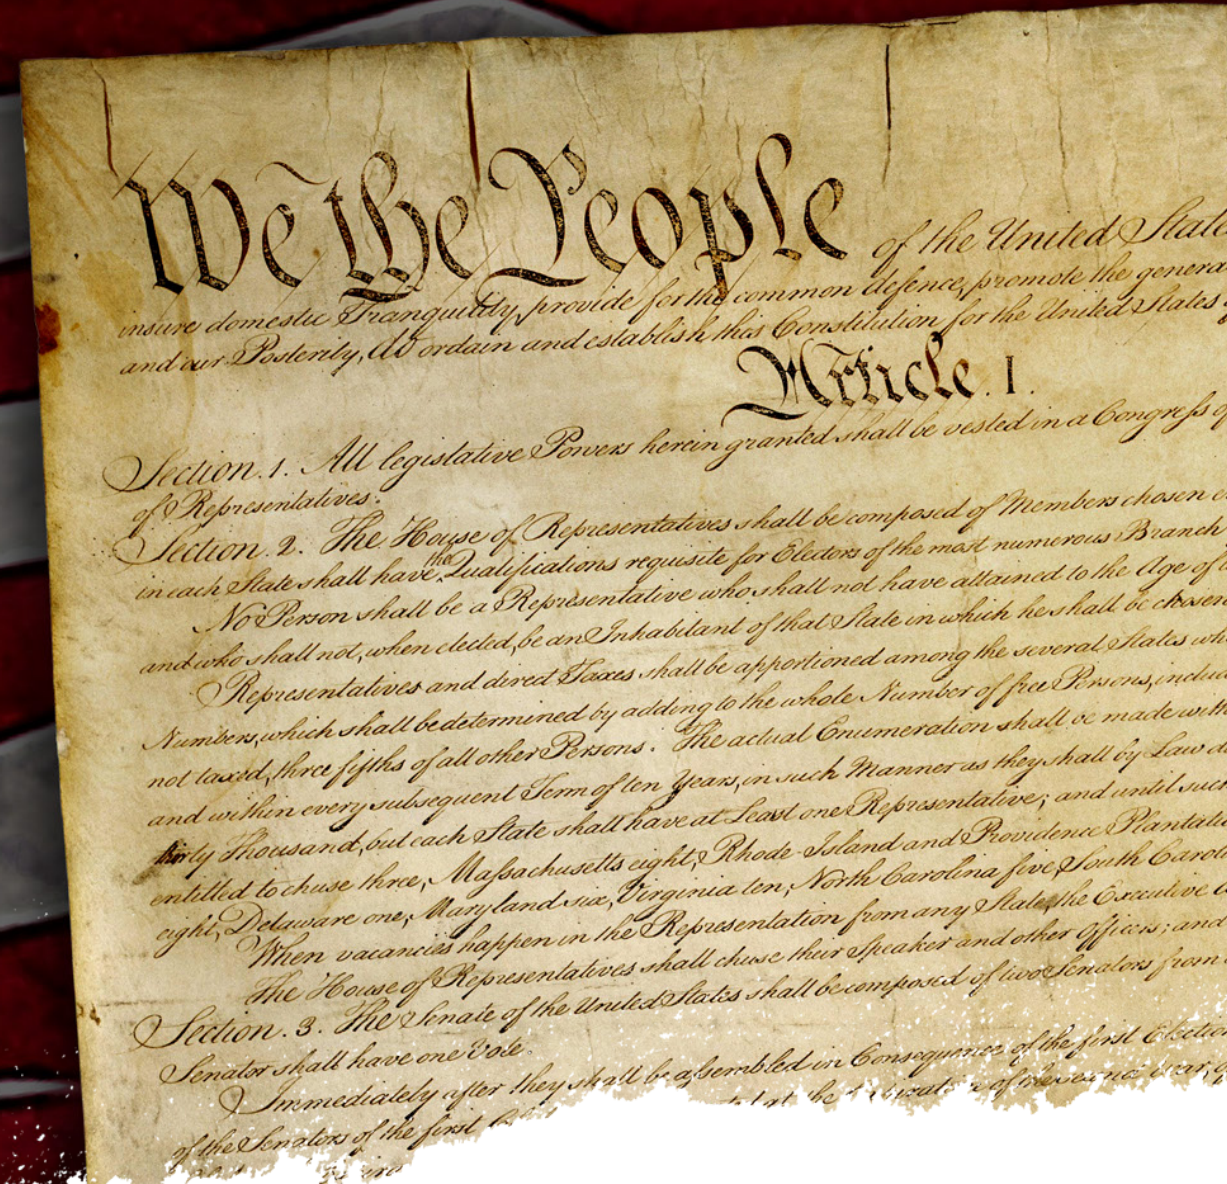 We the People of the United State
insure domestic Tranquility, provide for the common defence, promote the genera
and our Posterity, do ordain and establish this Constitution for the United States
Article. I.
Section. 1. All legislative Powers herein granted shall be vested in a Congress of
of Representatives.
Section. 2. The House of Representatives shall be composed of Members chosen
in each State shall have the Qualifications requisite for Electors of the most numerous Branch
No Person shall be a Representative who shall not have attained to the Age of
and who shall not, when elected, be an Inhabitant of that State in which he shall be chosen
Representatives and direct Taxes shall be apportioned among the several States wh
Numbers, which shall be determined by adding to the whole Number of free Persons, includ
not taxed, three fifths of all other Persons. The actual Enumeration shall be made with
and within every subsequent Term of ten Years, in such Manner as they shall by Law d
thirty Thousand, but each State shall have at Least one Representative; and until such
entitled to chuse three, Massachusetts eight, Rhode-Island and Providence Plantatio
eight, Delaware one, Maryland six, Virginia ten, North Carolina five, South Caroli
When vacancies happen in the Representation from any State, the Executive
The House of Representatives shall chuse their Speaker and other Officers; and
Section. 3. The Senate of the United States shall be composed of two Senators from
Senator shall have one Vote.
Immediately after they shall be assembled in Consequence of the first Election
of the Senators of the first of the second Year,